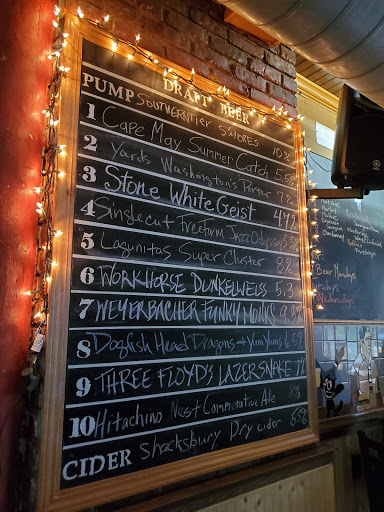 DRAFT BEER
PUMP SOUTHERNTIER S'MORES 10%
1 Cape May Summer Catch 5.5%
2 Yards Washington's Porter 7%
3 Stone White Geist 4.7%
4 Singlecut Freeform Jazz Odyssey
5 Lagunitas Super Cluster 8%
6 WORKHORSE DUNKELWEISS 5.3
7 WEYERBACHER FUNKY MONKS
8 Dogfish Head Dragons & YumYums 6.5%
9 THREE FLOYD'S LAZERSNAKE 7%
10 Hitachino Nest Commerative Ale 8%
CIDER Shacksbury Dry cider 5.5%
Beer Mondays
Wednesdays